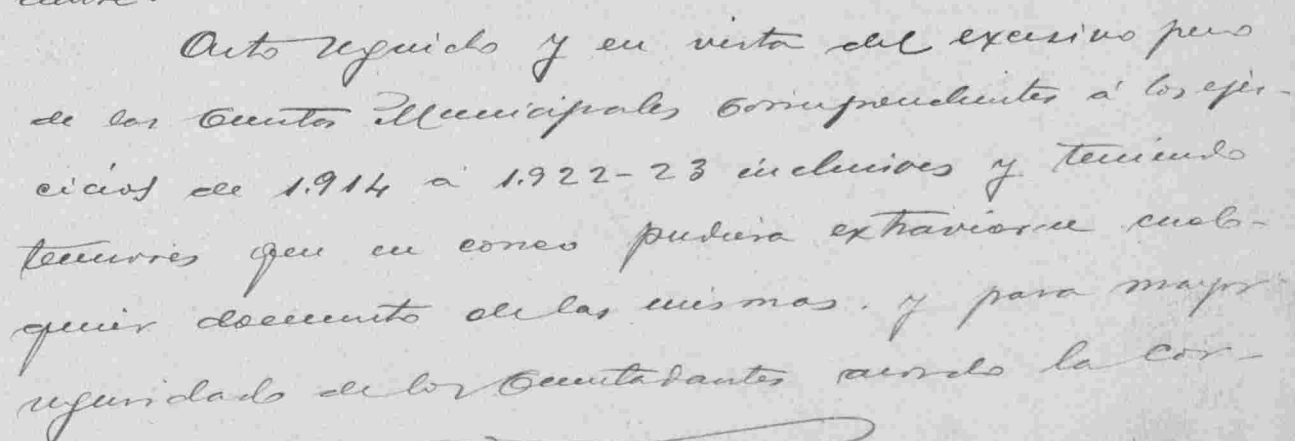 Acto seguido y en vista del excesivo peso
de las Cuentas Municipales correspondientes á los ejer-
cicios de 1.914 a 1.922-23 inclusives y teniendo
temores que en correo pudiera extraviarse cual-
quier documento de las mismas. y para mayor
seguridad de los Cuentadantes acordo la Cor-